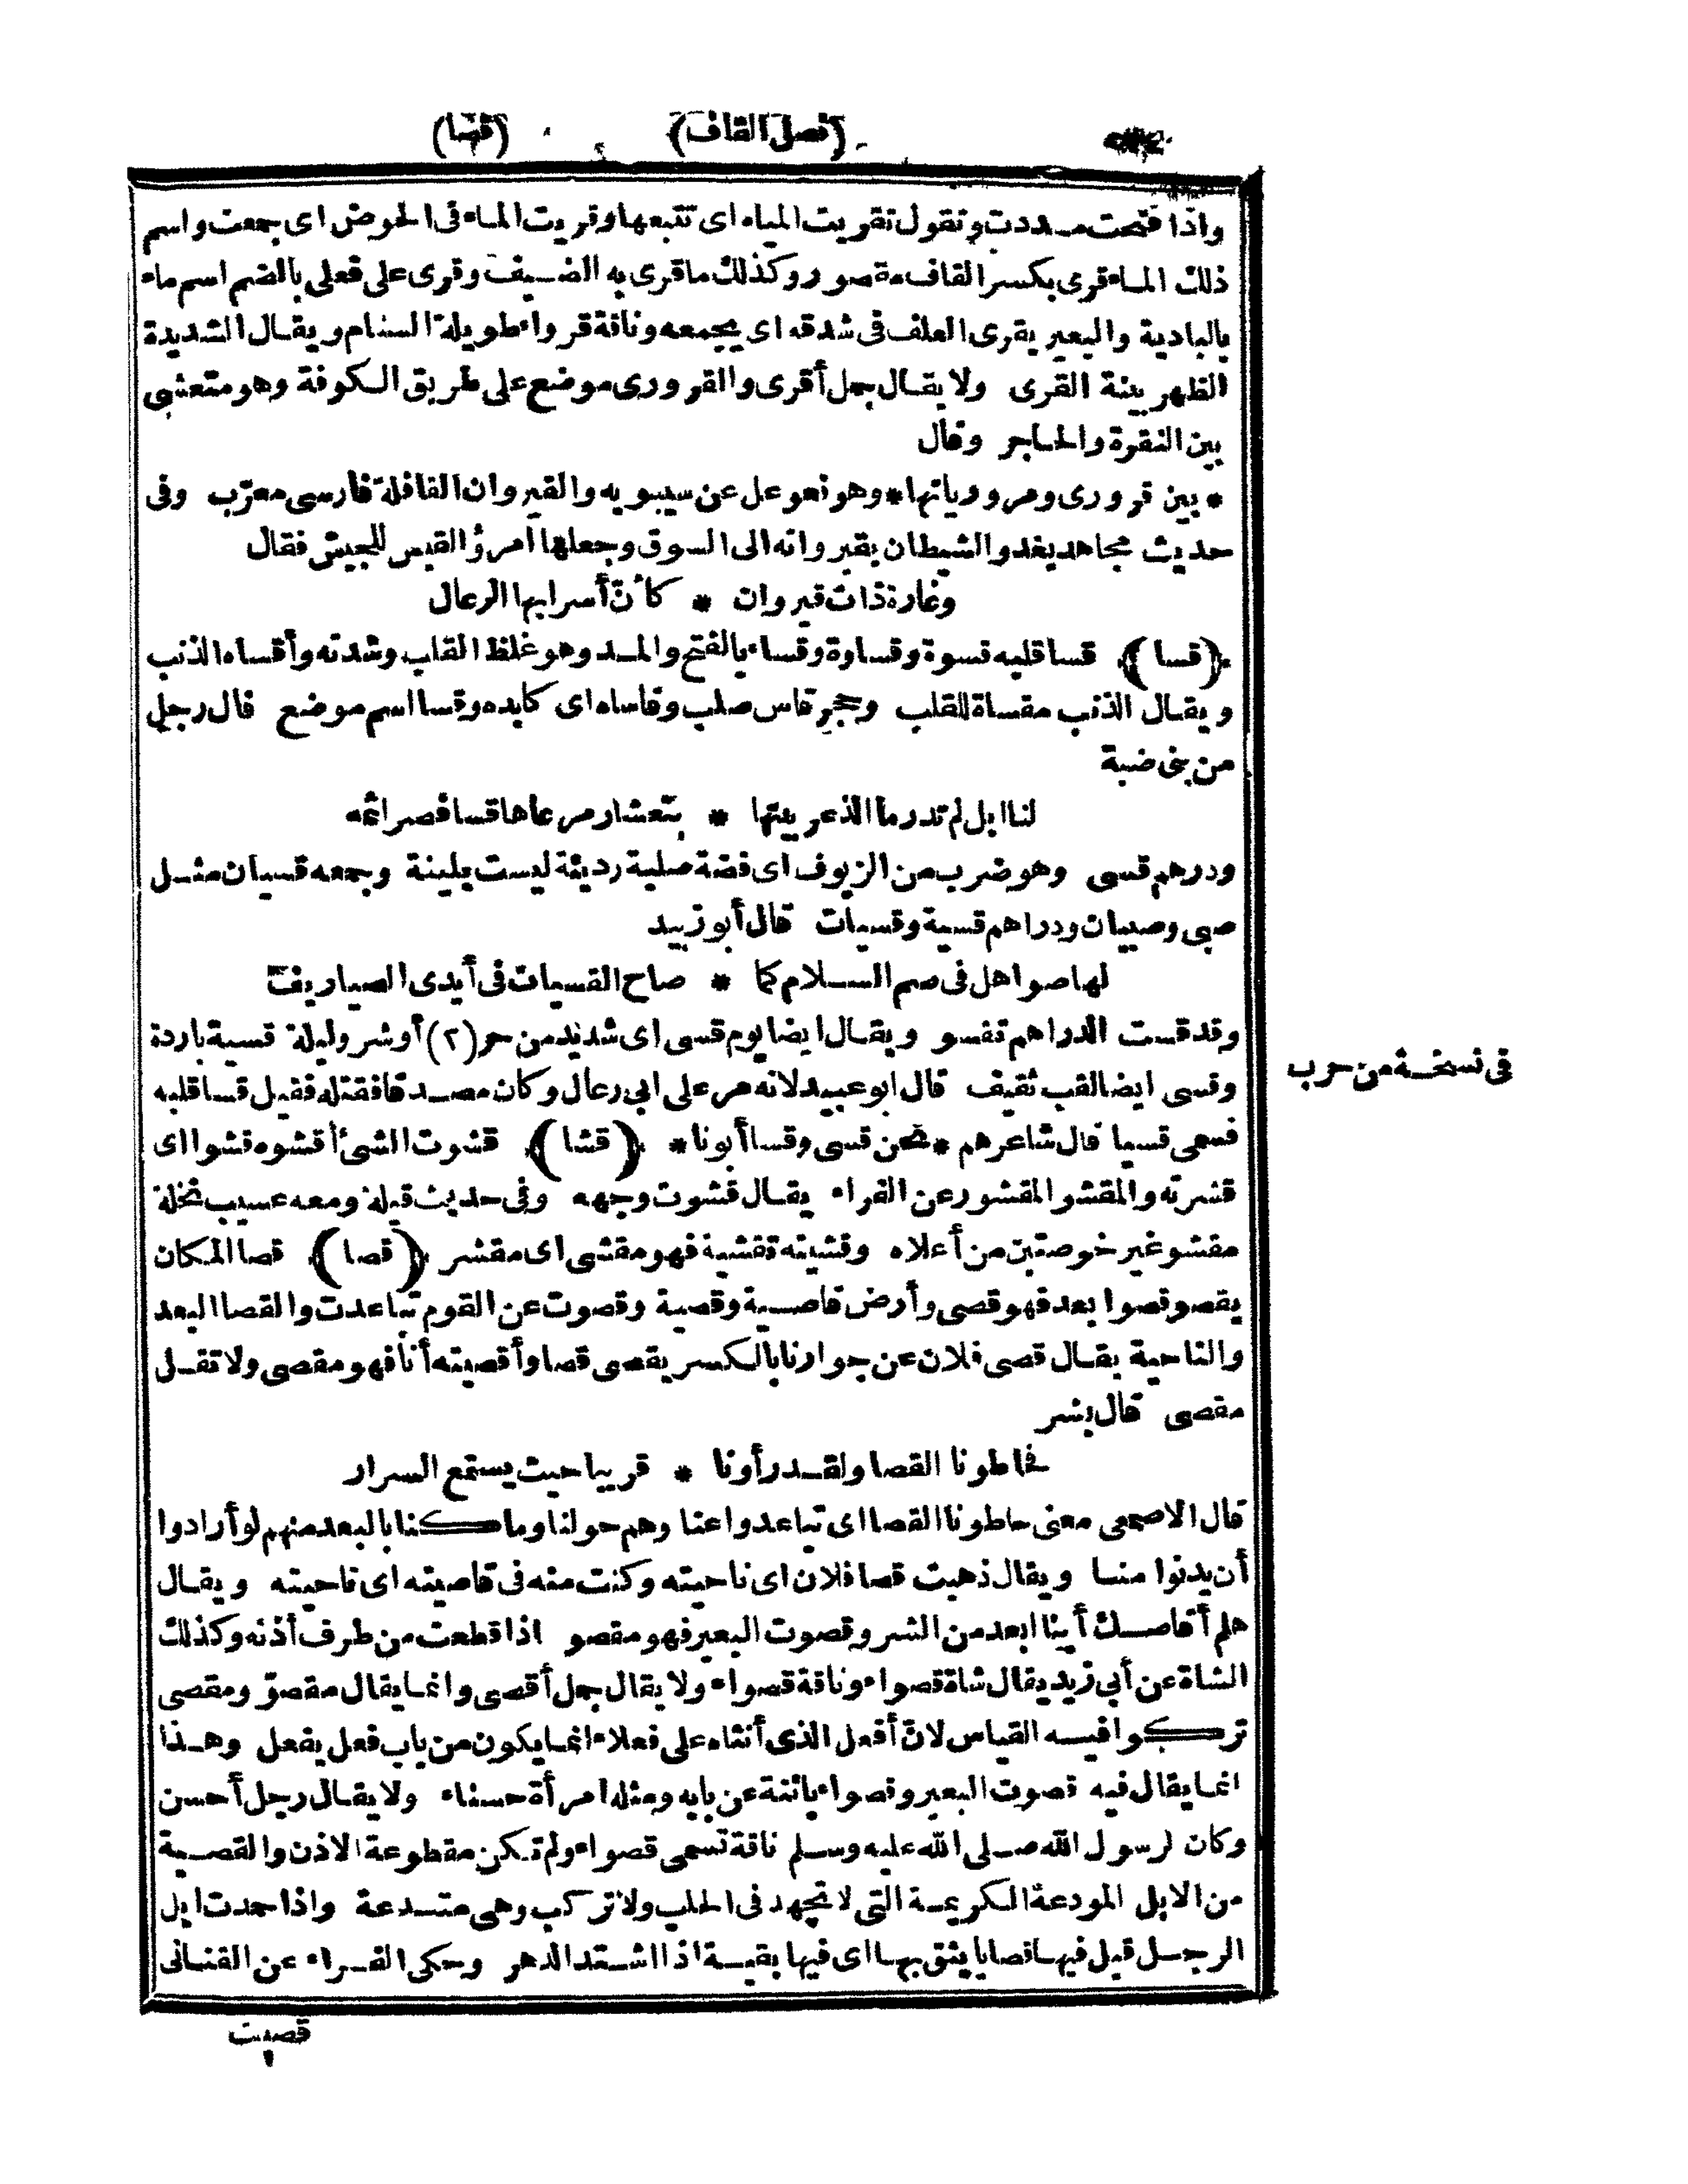 (فصل القاف) (قضا)
واذا فتحت مددت وتقول تقريت المياه اى تتبعها وقريت الماء فى الحوض اى جمعت واسم
ذلك الماء قرى بكسر القاف مقصور وكذلك ما قرى به الضيف وقرى على فعلى بالضم اسم ماء
بالبادية والبعير يقرى العلف فى شدقه اى يجمعه وناقة قرواء طويلة السنام ويقال الشديدة
الظهر بينة القرى ولا يقال جمل أقرى والقرورى موضع على طريق الكوفة وهو متعشى
بين النقرة والحاجر وقال
* بين قرورى ومرورياتها * وهو فعوعل عن سيبويه والقيروان القافلة فارسى معرّب وفى
حديث مجاهد يغدو الشيطان بقيروانه الى السوق وجعلها امرؤ القيس للجيش فقال
وغارة ذات قيروان * كأنّ أسرابها الرعال
(قسا) قسا قلبه قسوة وقساوة وقساء بالفتح والمد وهو غلظ القلب وشدته وأقساه الذنب
ويقال الذنب مقساة للقلب وحجر قاس صلب وقاساه اى كابده وقسا اسم موضع قال رجل
من بنى ضبة
لنا ابل لم تدر ما الذعر بيتها * بتعشار مرعاها قسا فصرائمه
ودرهم قسى وهو ضرب من الزيوف اى فضة صلبة رديئة ليست بلينة وجمعه قسيان مثل
صبى وصبيان ودراهم قسية وقسيات قال أبو زبيد
لها صواهل فى صم السلام كما * صاح القسيات فى أيدى الصياريف
وقد قست الدراهم تقسو ويقال ايضا يوم قسى اى شديد من حر (٢) أو شر وليلة قسية باردة
فى نسخة من حرب
وقسى ايضا لقب ثقيف قال ابو عبيد لانه مر على ابى رعال وكان مصدقا فقتله فقيل قسا قلبه
فسمى قسيا قال شاعرهم * نحن قسى وقسا أبونا * (قشا) قشوت الشئ أقشوه قشوا اى
قشرته والمقشو المقشور عن الفراء يقال قشوت وجهه وفى حديث قيلة ومعه عسيب نخلة
مقشو غير خوصتين من أعلاه وقشيته تقشية فهو مقشى اى مقشر (قصا) قصا المكان
يقصو قصوا بعد فهو قصى وأرض قاصية وقصية وقصوت عن القوم تباعدت والقصا البعد
والناحية يقال قصى فلان عن جوارنا بالكسر يقصى قصا وأقصيته أنا فهو مقصى ولا تقل
مقصى قال بشر
فحاطونا القصا ولقد رأونا * قريبا حيث يستمع السرار
قال الاصمعى معنى حاطونا القصا اى تباعدوا عنا وهم حولنا وما كنا بالبعد منهم لو أرادوا
أن يدنوا منا ويقال ذهبت قصا فلان اى ناحيته وكنت منه فى قاصيته اى ناحيته ويقال
هلم أقاصك أينا ابعد من الشر وقصوت البعير فهو مقصو اذا قطعت من طرف أذنه وكذلك
الشاة عن أبى زيد يقال شاة قصواء وناقة قصواء ولا يقال جمل أقصى وانما يقال مقصوّ ومقصى
تركوا فيه القياس لانّ أفعل الذى أنثاه على فعلاء انما يكون من باب فعل يفعل وهذا
انما يقال فيه قصوت البعير وقصواء بائنة عن بابه ومثله امرأة حسناء ولا يقال رجل أحسن
وكان لرسول الله صلى الله عليه وسلم ناقة تسمى قصواء ولم تكن مقطوعة الاذن والقصية
من الابل المودعة الكريمة التى لا تجهد فى الحلب ولا تركب وهى متدعة واذا حمدت ابل
الرجل قيل فيها قصايا يثق بها اى فيها بقية اذا اشتد الدهر وحكى الفراء عن القنانى
قصيت